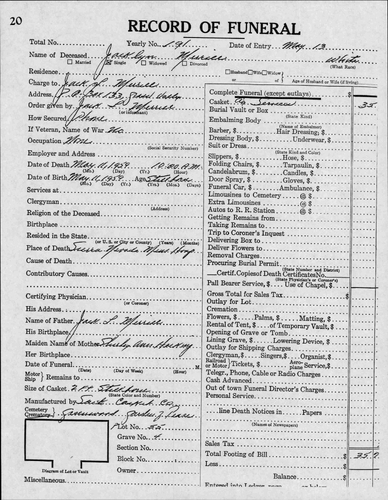 20
RECORD OF FUNERAL
Total No. Yearly No. 191 Date of Entry May 13
Name of Deceased Merrell White
Married Single Widowed Divorced (What Race)
Residence Husband Wife Widow or Age of Husband or Wife (if living)
Charge to Jack L. Merrell
Address P.O. Box 132
Order given by Jack L. Merrell
(or Informant)
How Secured Phone
If Veteran, Name of War No
Occupation None
(Social Security Number)
Employer and Address
Date of Death May 11, 1954 10:30 A.M.
(Mo.) (Day) (Yr.)
Date of Birth May 11, 1954 Age Stillborn
(Mo.) (Day) (Yr.)
Services at
Clergyman
(Address)
Religion of the Deceased
Birthplace
Resided in the State
(or U.S. or City or County) (Years) (Months)
Place of Death
Cause of Death
Contributory Causes
Certifying Physician
(or Coroner)
His Address
Name of Father Jack L. Merrell
His Birthplace
Maiden Name of Mother Shirley Ann
Her Birthplace
Date of Funeral
Motor Ship Remains to
Size of Casket 2 ft Stillborn
(State Color and Number)
Manufactured by Casket Co.
Cemetery Crematory
Lot No. 55
Grave No. 4
Section No.
Block No.
Owner
Diagram of Lot or Vault
Miscellaneous
Complete Funeral (except outlays) $
Casket Services 35
Burial Vault or Box
(State Kind)
Embalming Body
(Name of Embalmer)
Barber, $ Hair Dressing, $
Dressing Body, $ Underwear, $
Suit or Dress
(State Kind and Color)
Slippers, $ Hose, $
Folding Chairs, $ Tarpaulin, $
Candelabrum, $ Candles, $
Door Spray, $ Gloves, $
Funeral Car, $ Ambulance, $
Limousines to Cemetery @ $
Extra Limousines @ $
Autos to R. R. Station @ $
Getting Remains from
Taking Remains to
Trip to Coroner's Inquest
Delivering Box to
Deliver Flowers to
Removal Charges
Procuring Burial Permit
(State Number and District)
Certif. Copies of Death Certificates No.
(State Physician's or Coroner's)
Pall Bearer Service, $ Use of Chapel, $
Gross Total for Sales Tax $
Outlay for Lot
Cremation
Flowers, $ Palms, $ Matting, $
Rental of Tent, $ of Temporary Vault, $
Opening of Grave or Tomb
Lining Grave, $ Lowering Device, $
Outlay for Shipping Charges
Clergyman, $ Singers, $ Organist, $
Railroad or Motor Tickets, $ Aeroplane Service, $
Telegr., Phone, Cable or Radio Charges
Cash Advanced
Out of town Funeral Director's Charges
Personal Service
line Death Notices in Papers
(Names of Newspapers)
Sales Tax
Total Footing of Bill $ 35.0
Less
Balance
Entered into Ledger